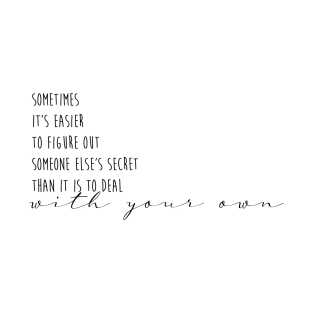 SOMETIMES
IT'S EASIER
TO FIGURE OUT
SOMEONE ELSE'S SECRET
THAN IT IS TO DEAL
with your own